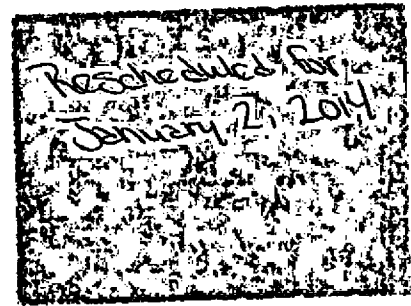 Rescheduled for
January 2, 2014